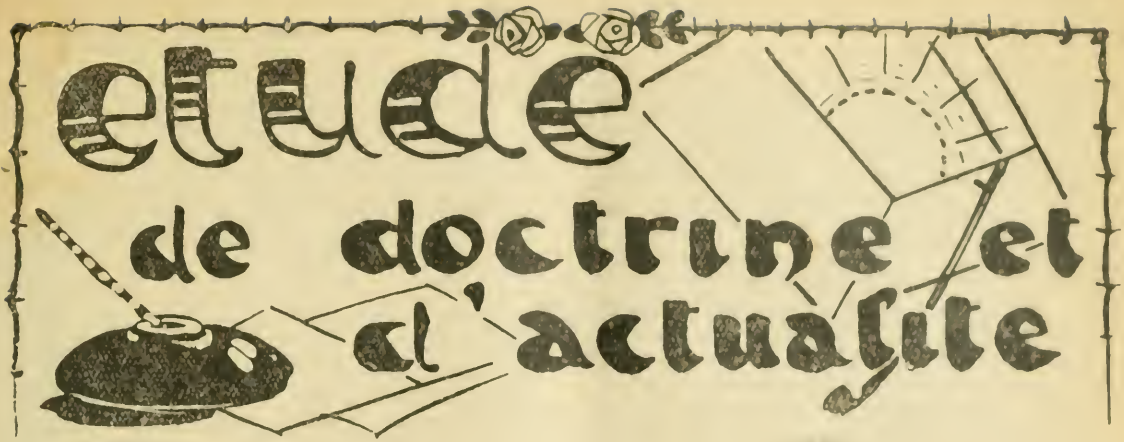 etude
de doctrine et
d'actualite